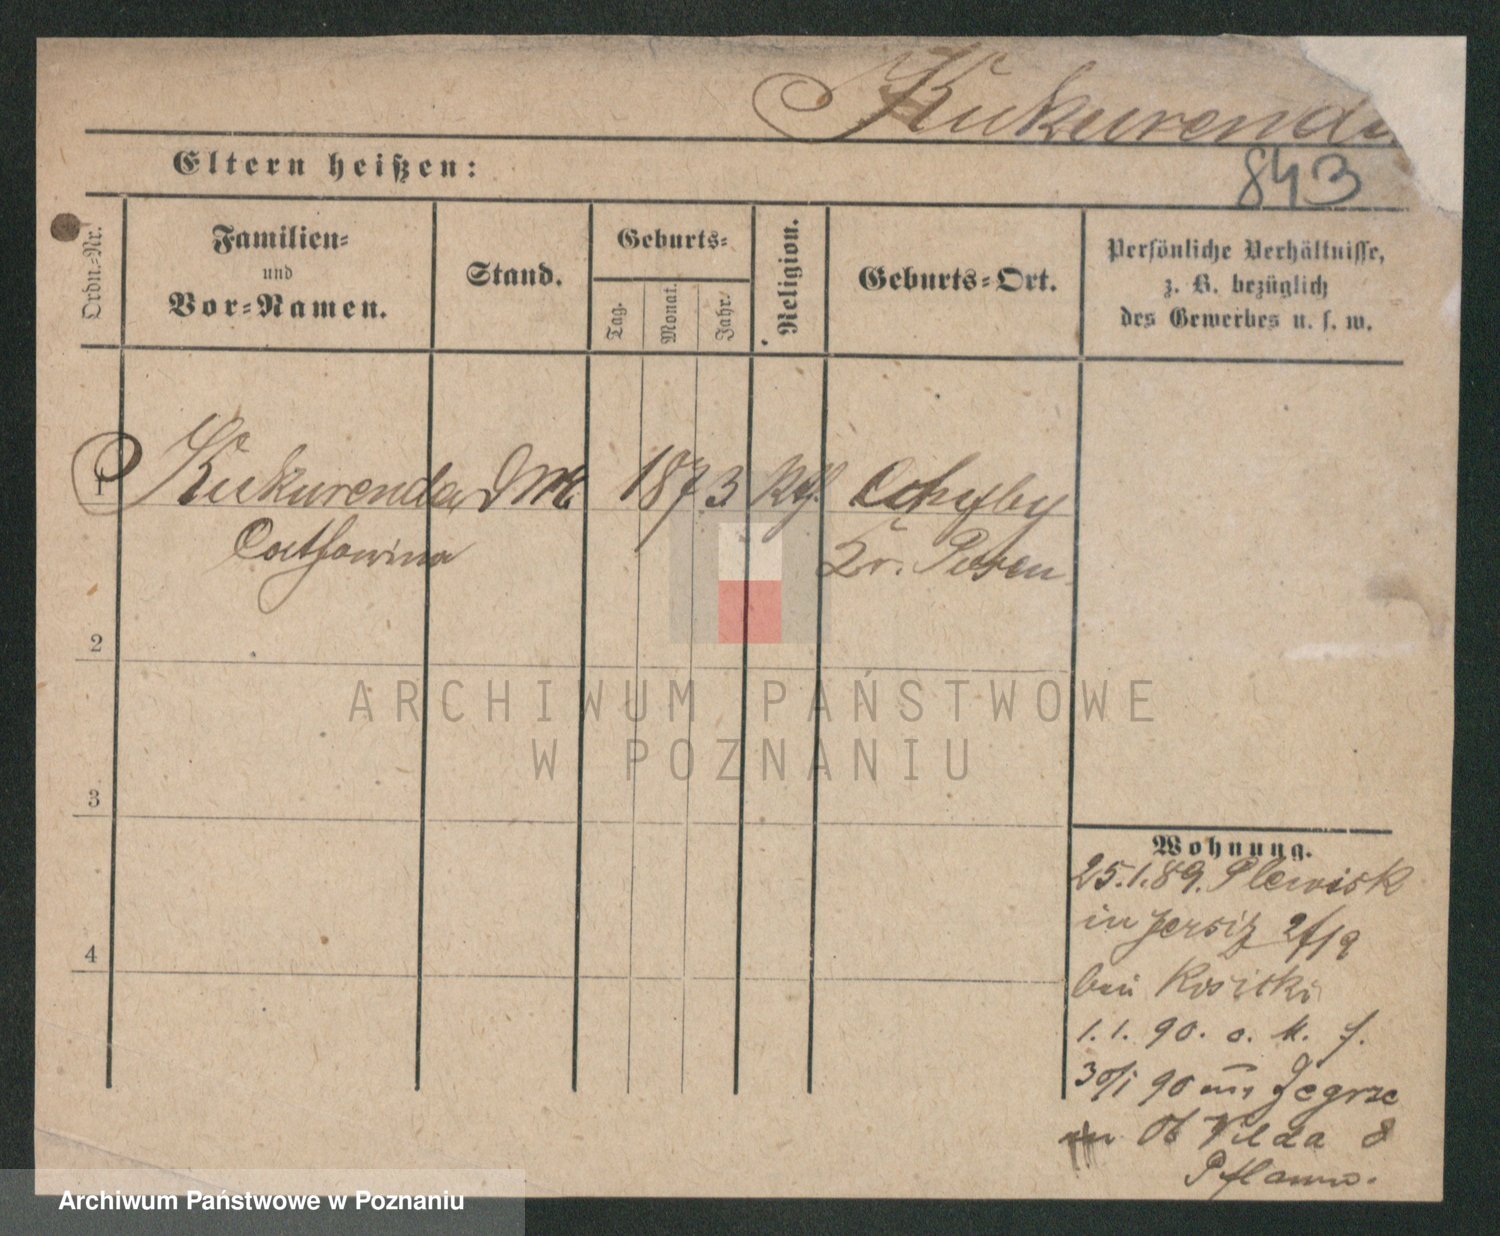 Kukurenda
Eltern heißen:
843
Ordn.-Nr.
Familien-
und
Vor-Namen.
Stand.
Geburts-
Tag.
Monat.
Jahr.
Religion.
Geburts-Ort.
Persönliche Verhältnisse,
z. B. bezüglich
des Gewerbes u. s. w.
1 Kukurenda DM. 1873 Kth.
Catharina Kr. Posen
2
3
4
ARCHIWUM PAŃSTWOWE
W POZNANIU
Wohnung.
25.1.89. Plewisk
in Jersiz 2/19
bei
1.1.90. o. K. f.
30/1 90 aus Zegrze
Ob Wilda 8
Archiwum Państwowe w Poznaniu